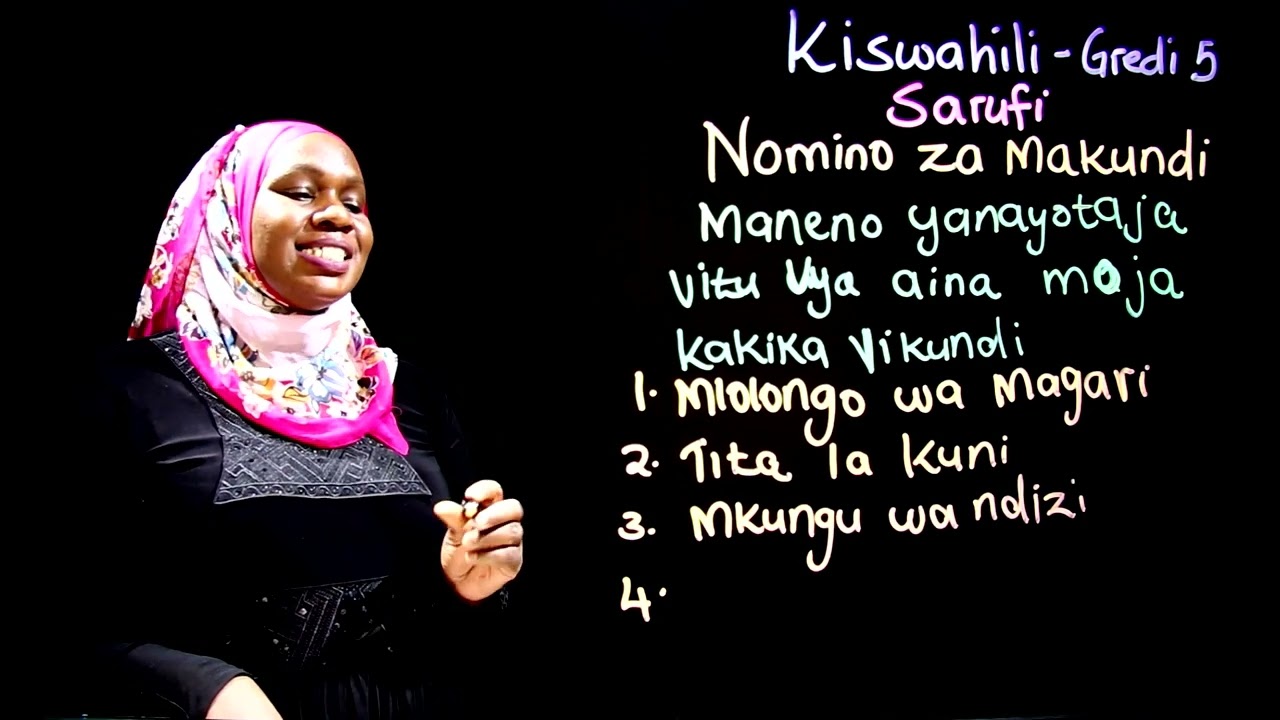 Kiswahili - Gredi 5
Sarufi
Nomino za Makundi
Maneno yanayotaja
vitu vya aina moja
kakika vikundi
1. Mlolongo wa Magari
2. Tita la kuni
3. Mkungu wa ndizi
4.